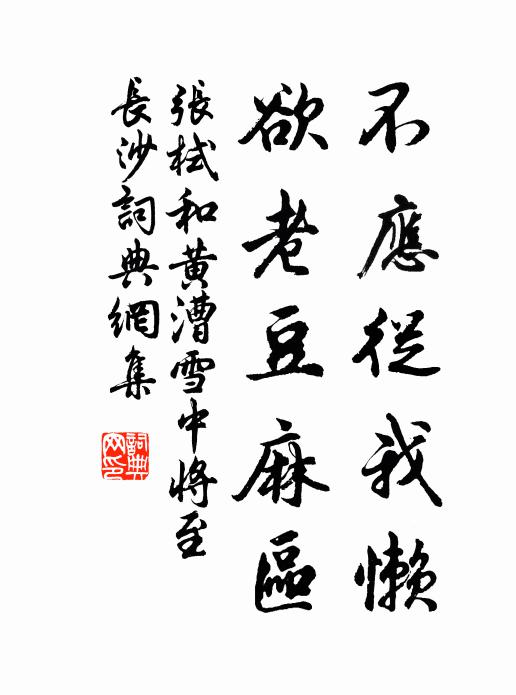 不應從我懶
欲老豆麻區
張栻和黃漕雪中將至
長沙詞典網集
詞典
网印